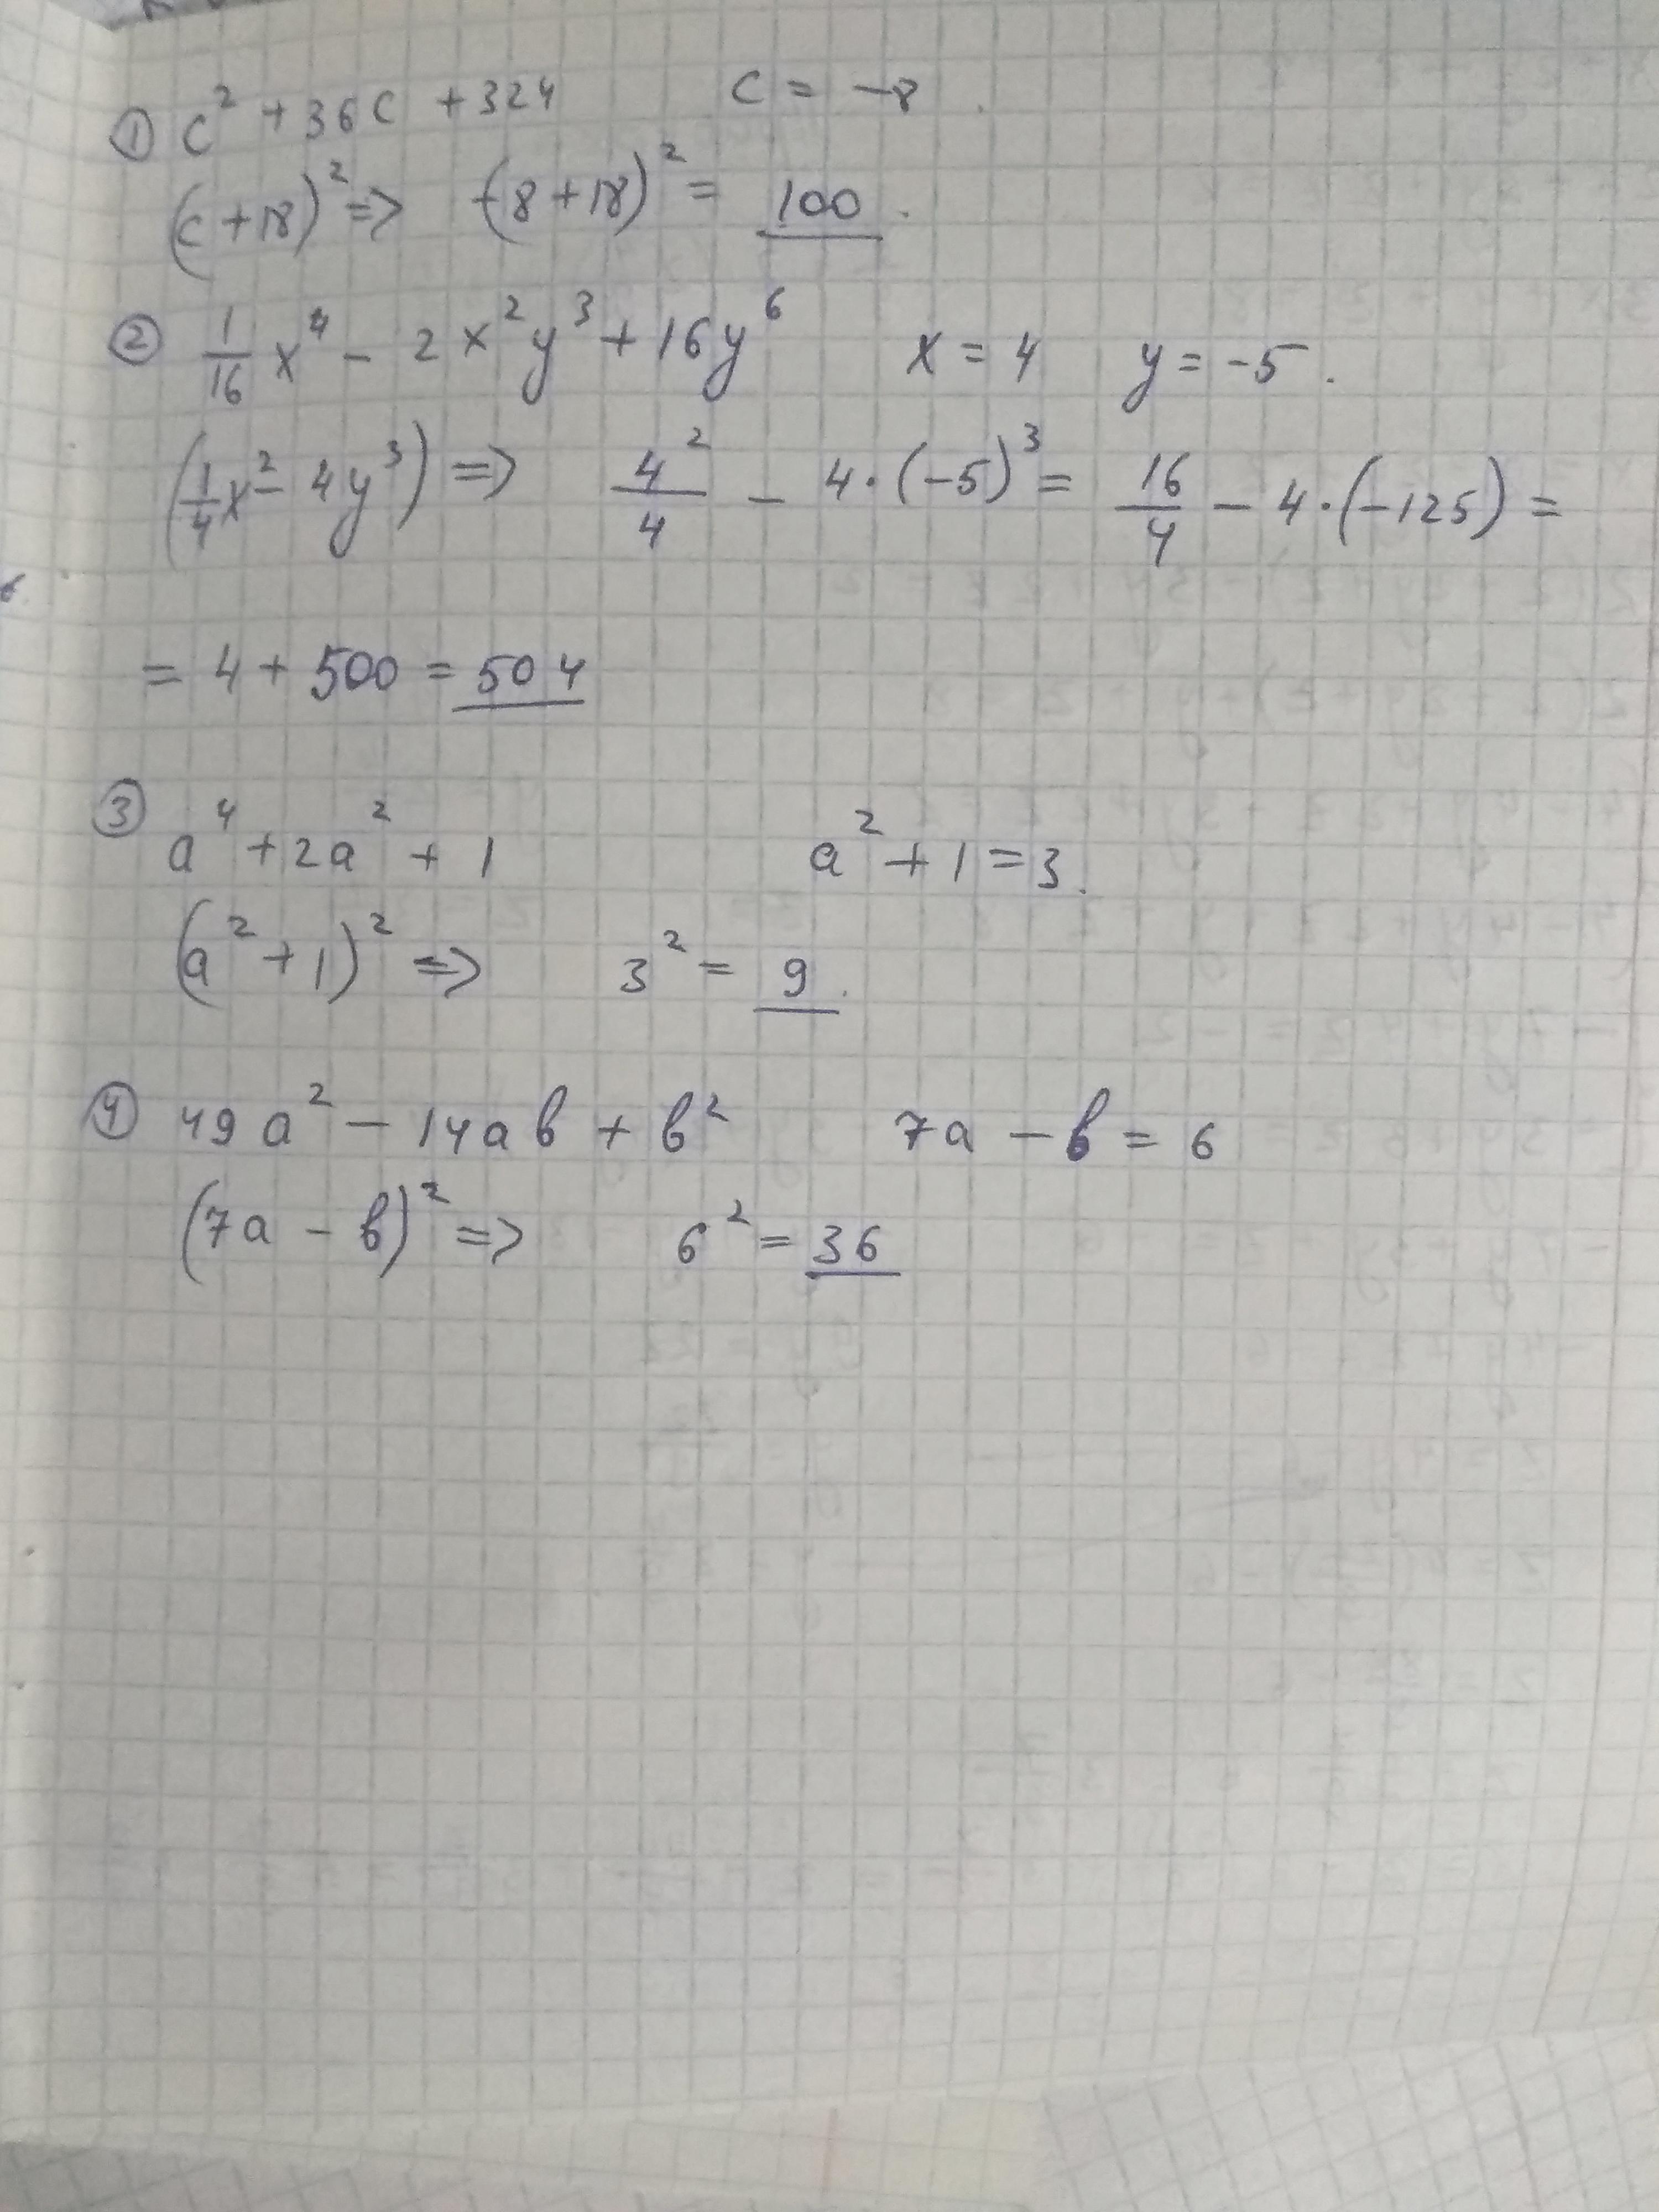 ① c² + 36c + 324 c = -8.
(c + 18)² => (-8 + 18)² = 100.
② 1/16 x⁴ - 2x²y³ + 16y⁶ x = 4 y = -5.
(1/4 x² - 4y³) => 4²/4 - 4·(-5)³ = 16/4 - 4·(-125) =
= 4 + 500 = 504
③ a⁴ + 2a² + 1 a² + 1 = 3.
(a² + 1)² => 3² = 9.
④ 49a² - 14ab + b² 7a - b = 6
(7a - b)² => 6² = 36